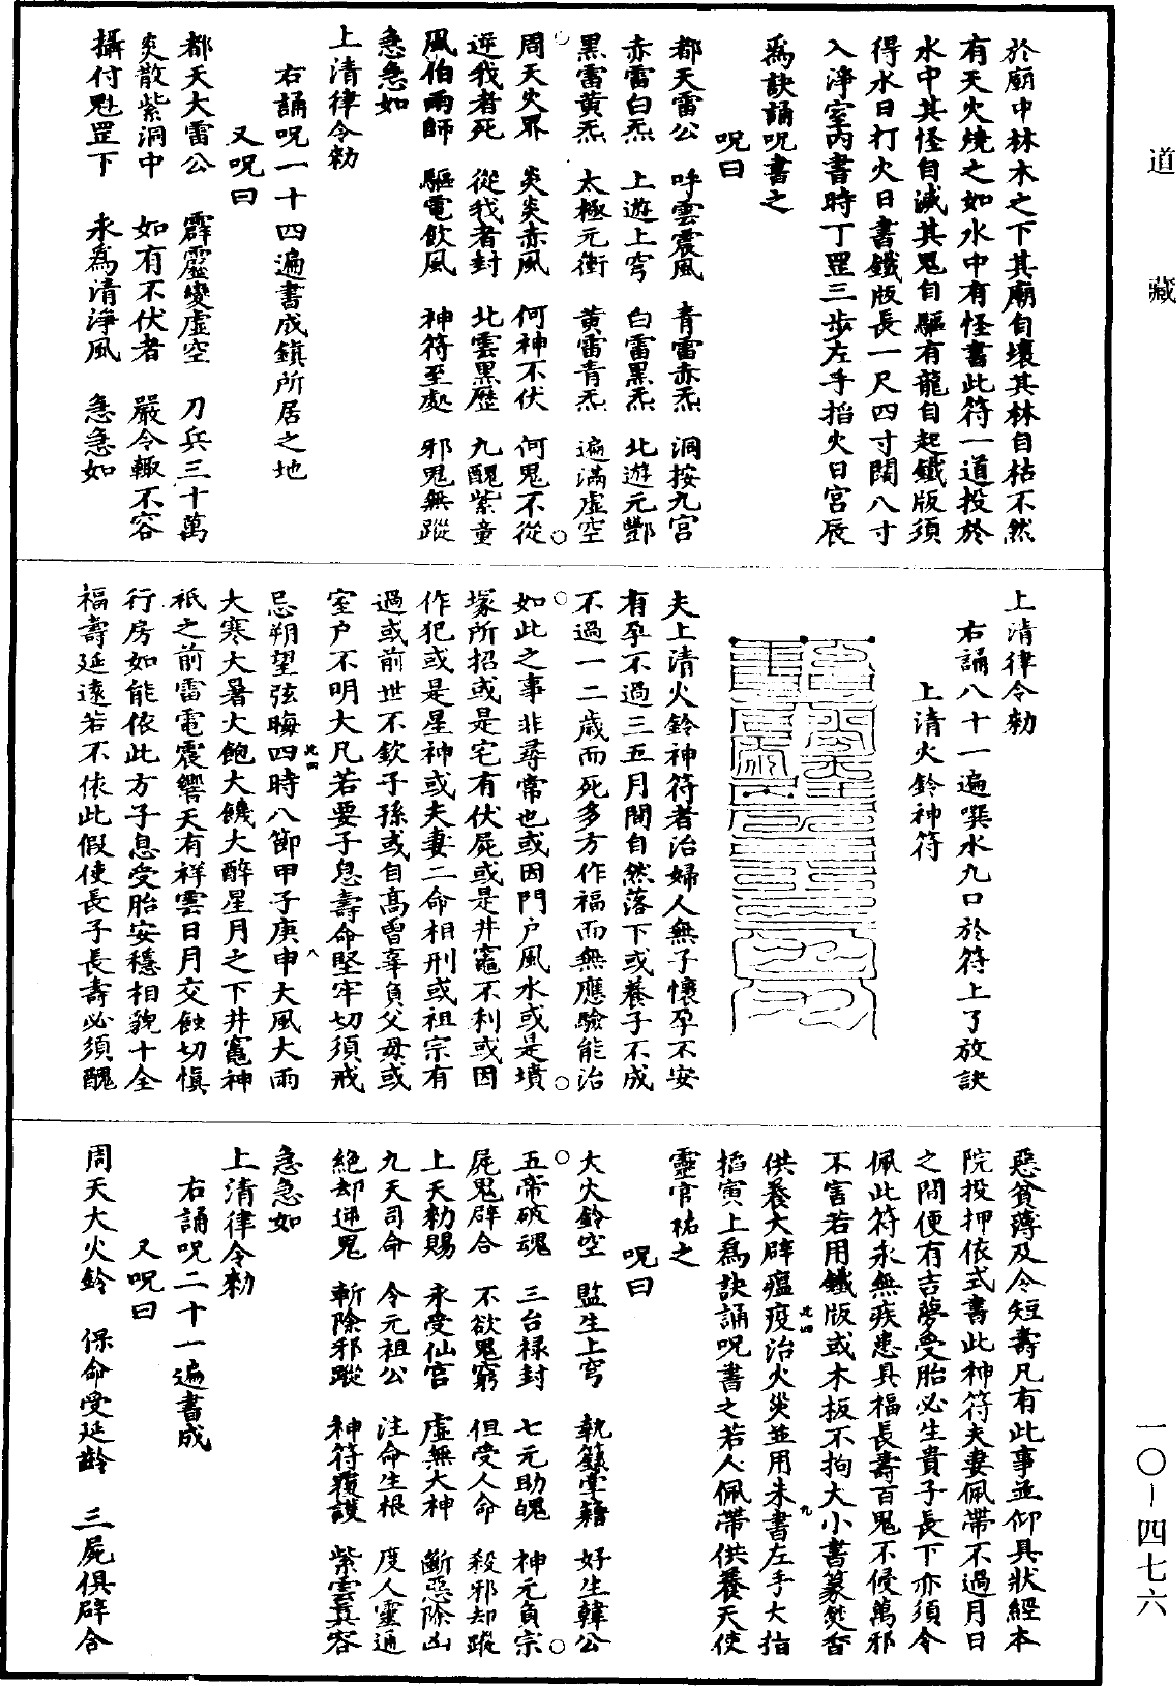 道藏
於廟中林木之下其廟自壞其林自枯不然
有天火燒之如水中有怪書此符一道投於
水中其怪自滅其鬼自驅有龍自起鐵版須
得水日打火日書鐵版長一尺四寸闊八寸
入淨室內書時丁罡三步左手掐火日宮辰
為訣誦呪書之
呪曰
都天雷公　呼雲震風　青雷赤炁　洞按九宮
赤雷白炁　上遊上穹　白雷黑炁　北遊元酆
黑雷黃炁　太極元衝　黃雷青炁　遍滿虛空
周天火界　炎炎赤風　何神不伏　何鬼不從
逆我者死　從我者封　北雲黑歷　九醜紫童
風伯雨師　驅電飲風　神符至處　邪鬼無蹤
急急如
上清律令勑
右誦呪一十四遍書成鎮所居之地
又呪曰
都天大雷公　霹靂變虛空　刀兵三十萬
炎散紫洞中　如有不伏者　嚴令輙不容
攝付魁罡下　永為清淨風　急急如
上清律令勑
右誦八十一遍噀水九口於符上了放訣
上清火鈴神符
夫上清火鈴神符者治婦人無子懷孕不安
有孕不過三五月間自然落下或養子不成
不過一二歲而死多方作福而無應驗能治
如此之事非尋常也或因門戶風水或是墳
塚所招或是宅有伏屍或是井竈不利或因
作犯或是星神或夫妻二命相刑或祖宗有
過或前世不欽子孫或自高曾辜負父母或
室戶不明大凡若要子息壽命堅牢切須戒
此四　八
忌朔望弦晦四時八節甲子庚申大風大雨
大寒大暑大飽大饑大醉星月之下井竈神
祇之前雷電震響天有祥雲日月交蝕切慎
行房如能依此方子息受胎安穩相貌十全
福壽延遠若不依此假使長子長壽必須醜
惡貧薄及令短壽凡有此事並仰具狀經本
院投押依式書此神符夫妻佩帶不過月日
之間便有吉夢受胎必生貴子長下亦須令
佩此符永無疾患具福長壽百鬼不侵萬邪
不害若用鐵版或木板不拘大小書篆焚香
此四　九
供養大辟瘟疫治火災並用朱書左手大指
掐寅上為訣誦呪書之若人佩帶供養天使
靈官祐之
呪曰
大火鈴空　監生上穹　執籙掌籍　好生韓公
五帝破魂　三台祿封　七元助魄　神元負宗
屍鬼辟合　不欲鬼窮　但受人命　殺邪却蹤
上天勑賜　永受仙官　虛無大神　斷惡除凶
九天司命　令元祖公　注命生根　度人靈通
絕却逓鬼　斬除邪蹤　神符覆護　紫雲真容
急急如
上清律令勑
右誦呪二十一遍書成
又呪曰
周天大火鈴　保命受延齡　三屍俱辟合
一〇-四七六